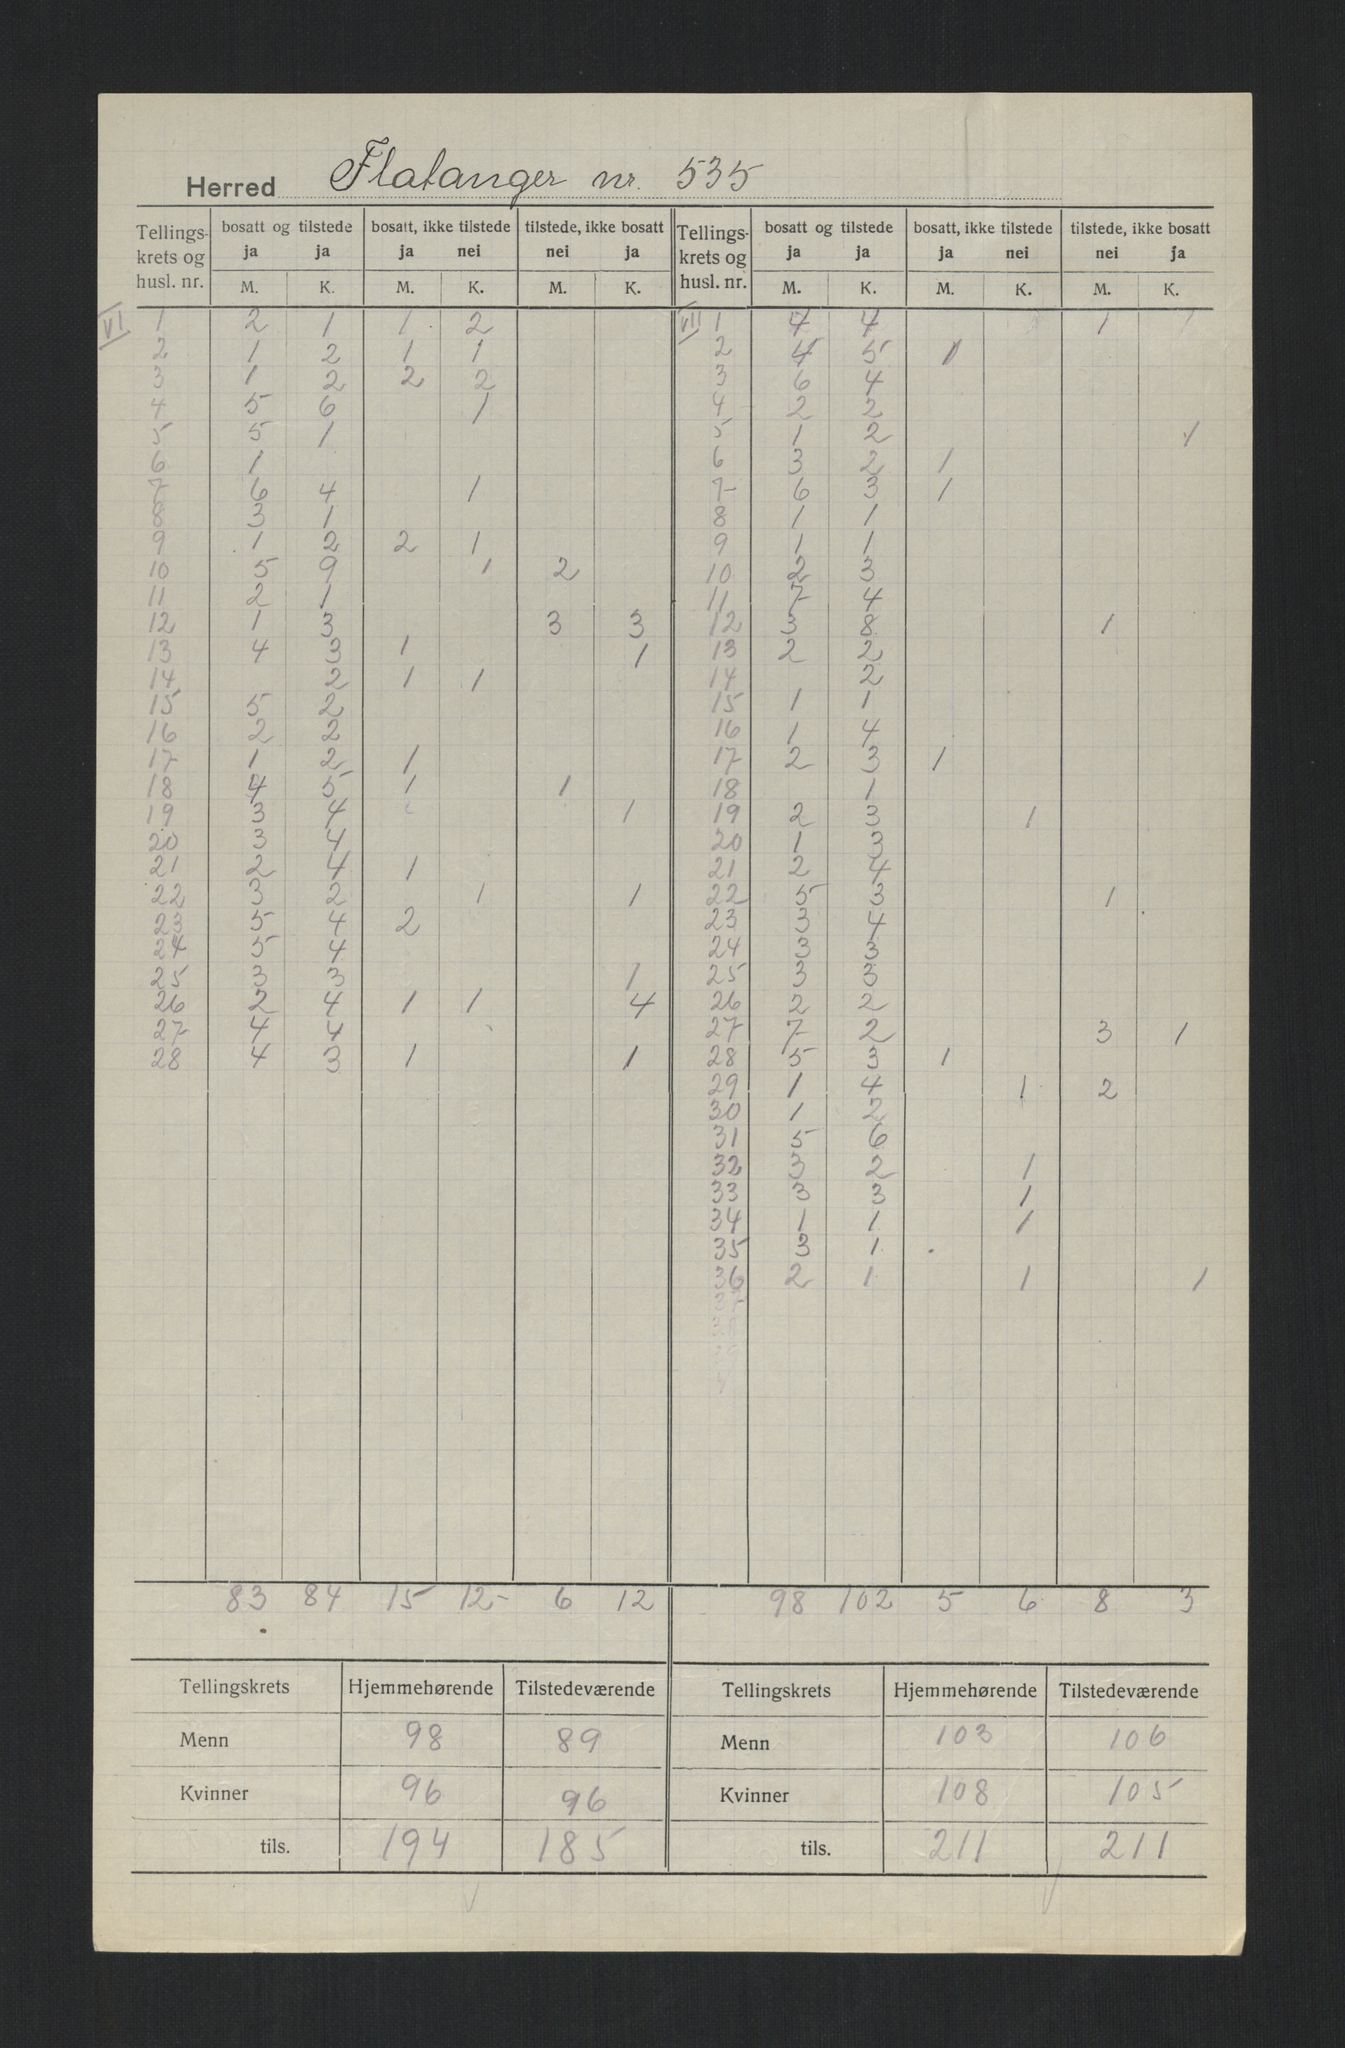 Herred Flatanger nr. 535
Tellings- krets og husl. nr. | bosatt og tilstede ja ja | bosatt, ikke tilstede ja nei | tilstede, ikke bosatt nei ja | Tellings- krets og husl. nr. | bosatt og tilstede ja ja | bosatt, ikke tilstede ja nei | tilstede, ikke bosatt nei ja
M. K. M. K. M. K. M. K. M. K. M. K.
VI 1 2 1 1 2
2 1 2 1 1
3 1 2 2 2
4 5 6 1
5 5 1
6 1
7 6 4 1
8 3 1
9 1 2 2 1
10 5 9 1 2
11 2 1
12 1 3 3 3
13 4 3 1 1
14 2 1 1
15 5 2
16 2 2
17 1 2 1
18 4 5 1 1
19 3 4 1
20 3 4
21 2 4 1
22 3 2 1 1
23 5 4 2
24 5 4
25 3 3 1
26 2 4 1 1 4
27 4 4
28 4 3 1 1
83 84 15 12 6 12
VII 1 4 4 1
2 4 5 1
3 6 4
4 2 2
5 1 2 1
6 3 2 1
7 6 3 1
8 1 1
9 1 1
10 2 3
11 7 4
12 3 8 1
13 2 2
14 2
15 1 1
16 1 4
17 2 3 1
18 1
19 2 3 1
20 1 3
21 2 4
22 5 3 1
23 3 4
24 3 3
25 3 3
26 2 2
27 7 2 3 1
28 5 3 1
29 1 4 1 2
30 1 2
31 5 6
32 3 2 1
33 3 3 1
34 1 1 1
35 3 1
36 2 1 1 1
98 102 5 6 8 3
Tellingskrets Hjemmehørende Tilstedeværende
Menn 98 89
Kvinner 96 96
tils. 194 185
Tellingskrets Hjemmehørende Tilstedeværende
Menn 103 106
Kvinner 108 105
tils. 211 211